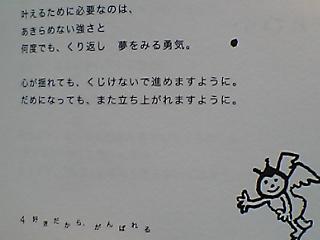 叶えるために必要なのは、
あきらめない強さと
何度でも、くり返し　夢をみる勇気。
心が揺れても、くじけないで進めますように。
だめになっても、また立ち上がれますように。
4 好きだから、がんばれる